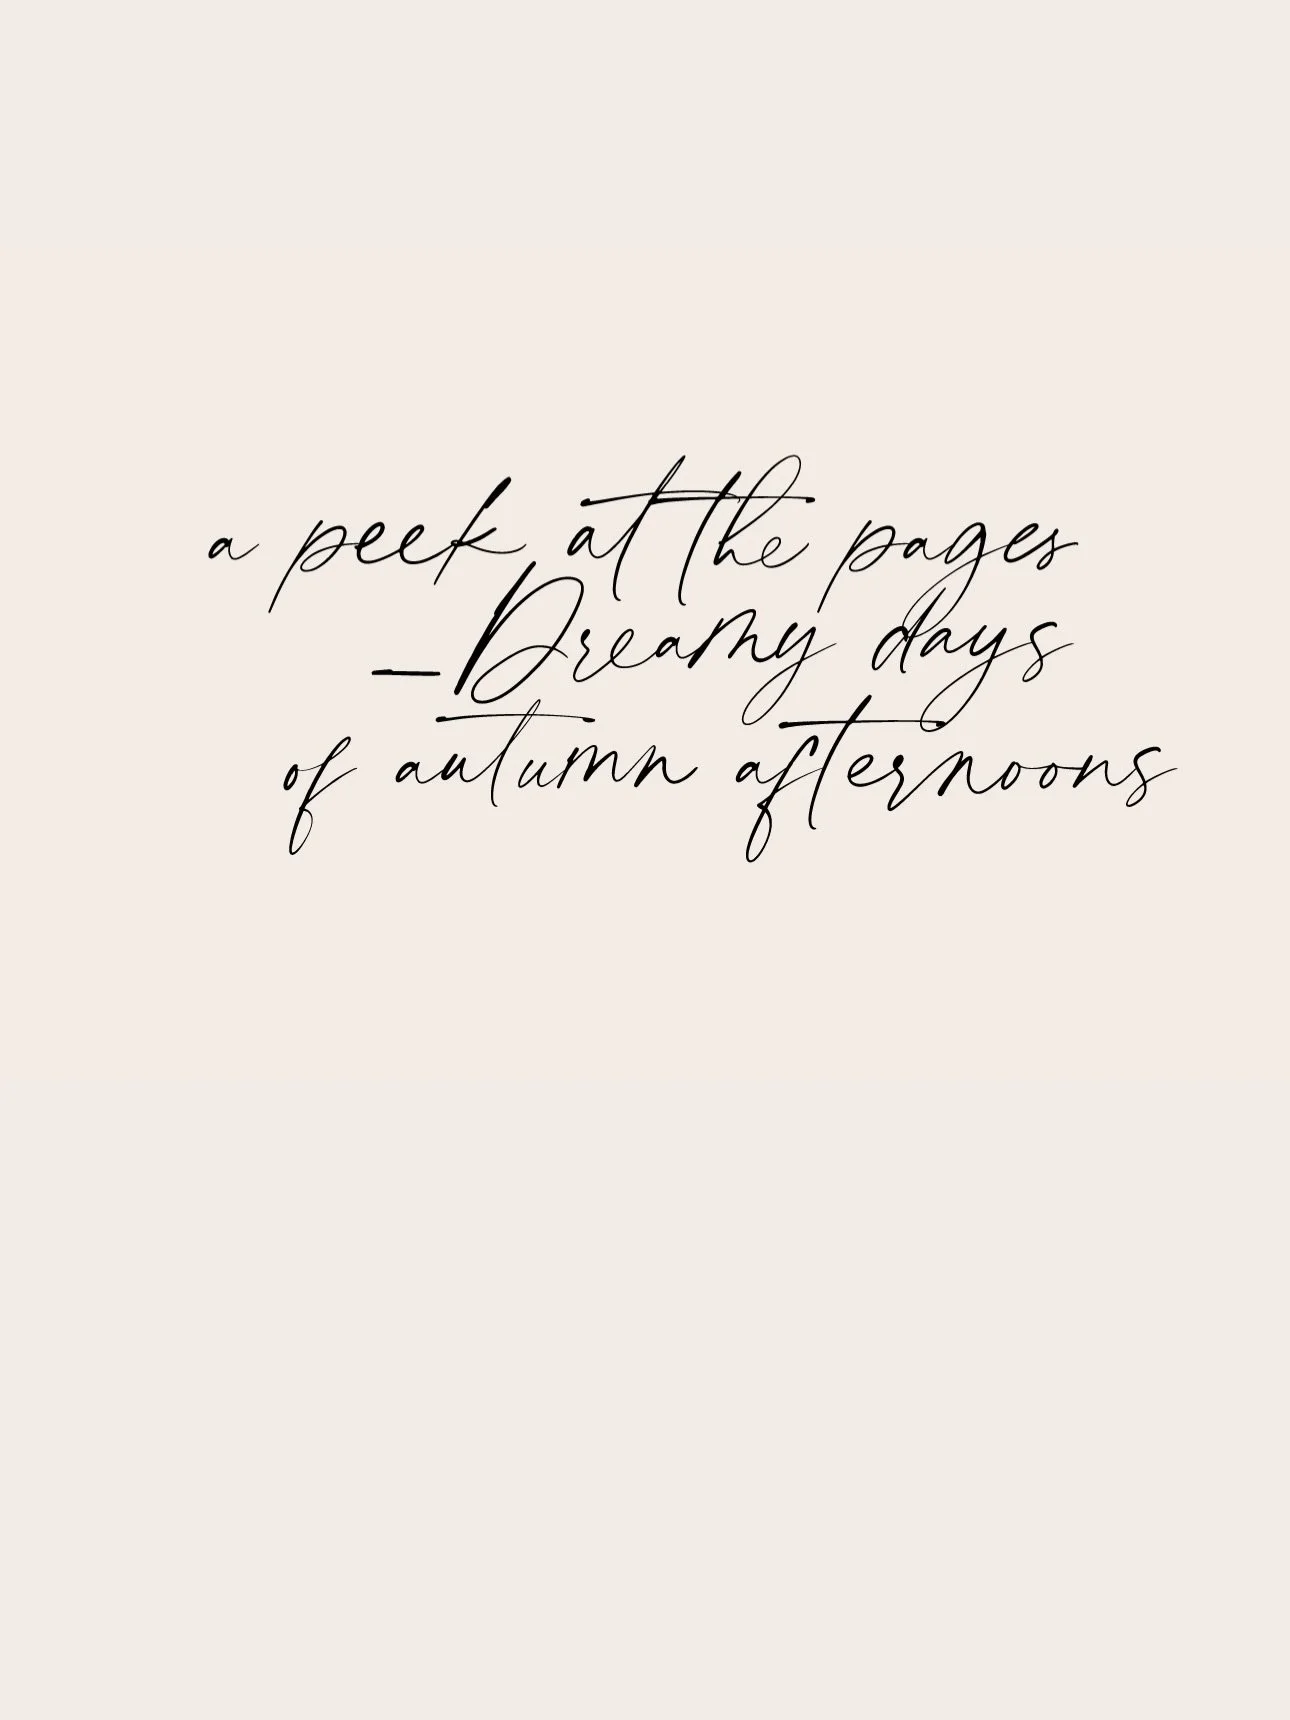 a peek at the pages
_Dreamy days
of autumn afternoons